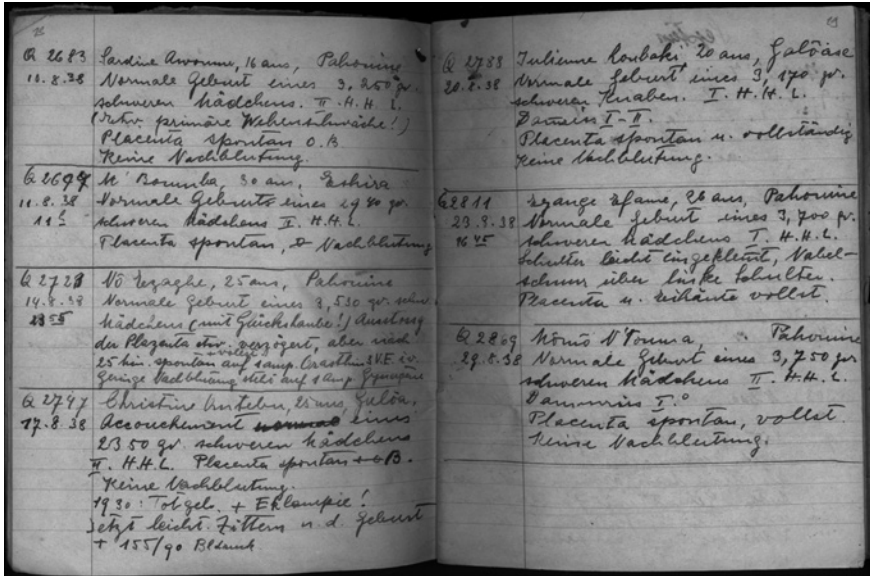 Q 2683 Sardine Awomme, 16 ans, Pahouine
10.8.38 Normale Geburt eines 3,250 gr.
schweren Mädchens. II. H.H.L.
primäre Wehenschwäche!)
Placenta spontan O.B.
Keine Nachblutung.
Q 2699 M'Boumba, 30 ans, Eshira
11.8.38 Normale Geburt eines 2940 gr.
11 h schweren Mädchens II. H.H.L.
Placenta spontan, Nachblutung
Q 2728 25 ans, Pahouine
14.8.38 Normale Geburt eines 3,530 gr. schw.
23 55 Mädchens (mit Glückshaube!) Ausstoss
der Plazenta etw. verzögert, aber nach
25 Min. spontan vollst. auf 1 amp. Orasthin 3VE i.v.
Geringe Nachblutung steht auf 1 Amp. Gynergène
Q 2747 Christine 25 ans, Galôa.
17.8.38 Accouchement normal eines
2350 gr. schweren Mädchens
II. H.H.L. Placenta spontan B.
Keine Nachblutung.
1930: Totgeb. + Eklampsie!
Jetzt leicht. Zittern n. d. Geburt
+ 155/90 Bldruck
69
Q 2788 Julienne 20 ans, Galôase
20.8.38 Normale Geburt eines 3,170 gr.
schweren Knaben. I. H.H.L.
Dammriss I-II.
Placenta spontan u. vollständig
Keine Nachblutung.
Q 2811 Efame, 26 ans, Pahouine
23.8.38 Normale Geburt eines 3,700 gr.
16 45 schweren Mädchens I. H.H.L.
Schulter leicht eingeklemt, Nabel-
schnur über linke Schulter.
Placenta u. Eihäute vollst.
Q 2869 N'Touma, Pahouine
29.8.38 Normale Geburt eines 3,750 gr
schweren Mädchens II. H.H.L.
Dammriss I.°
Placenta spontan, vollst.
Keine Nachblutung.